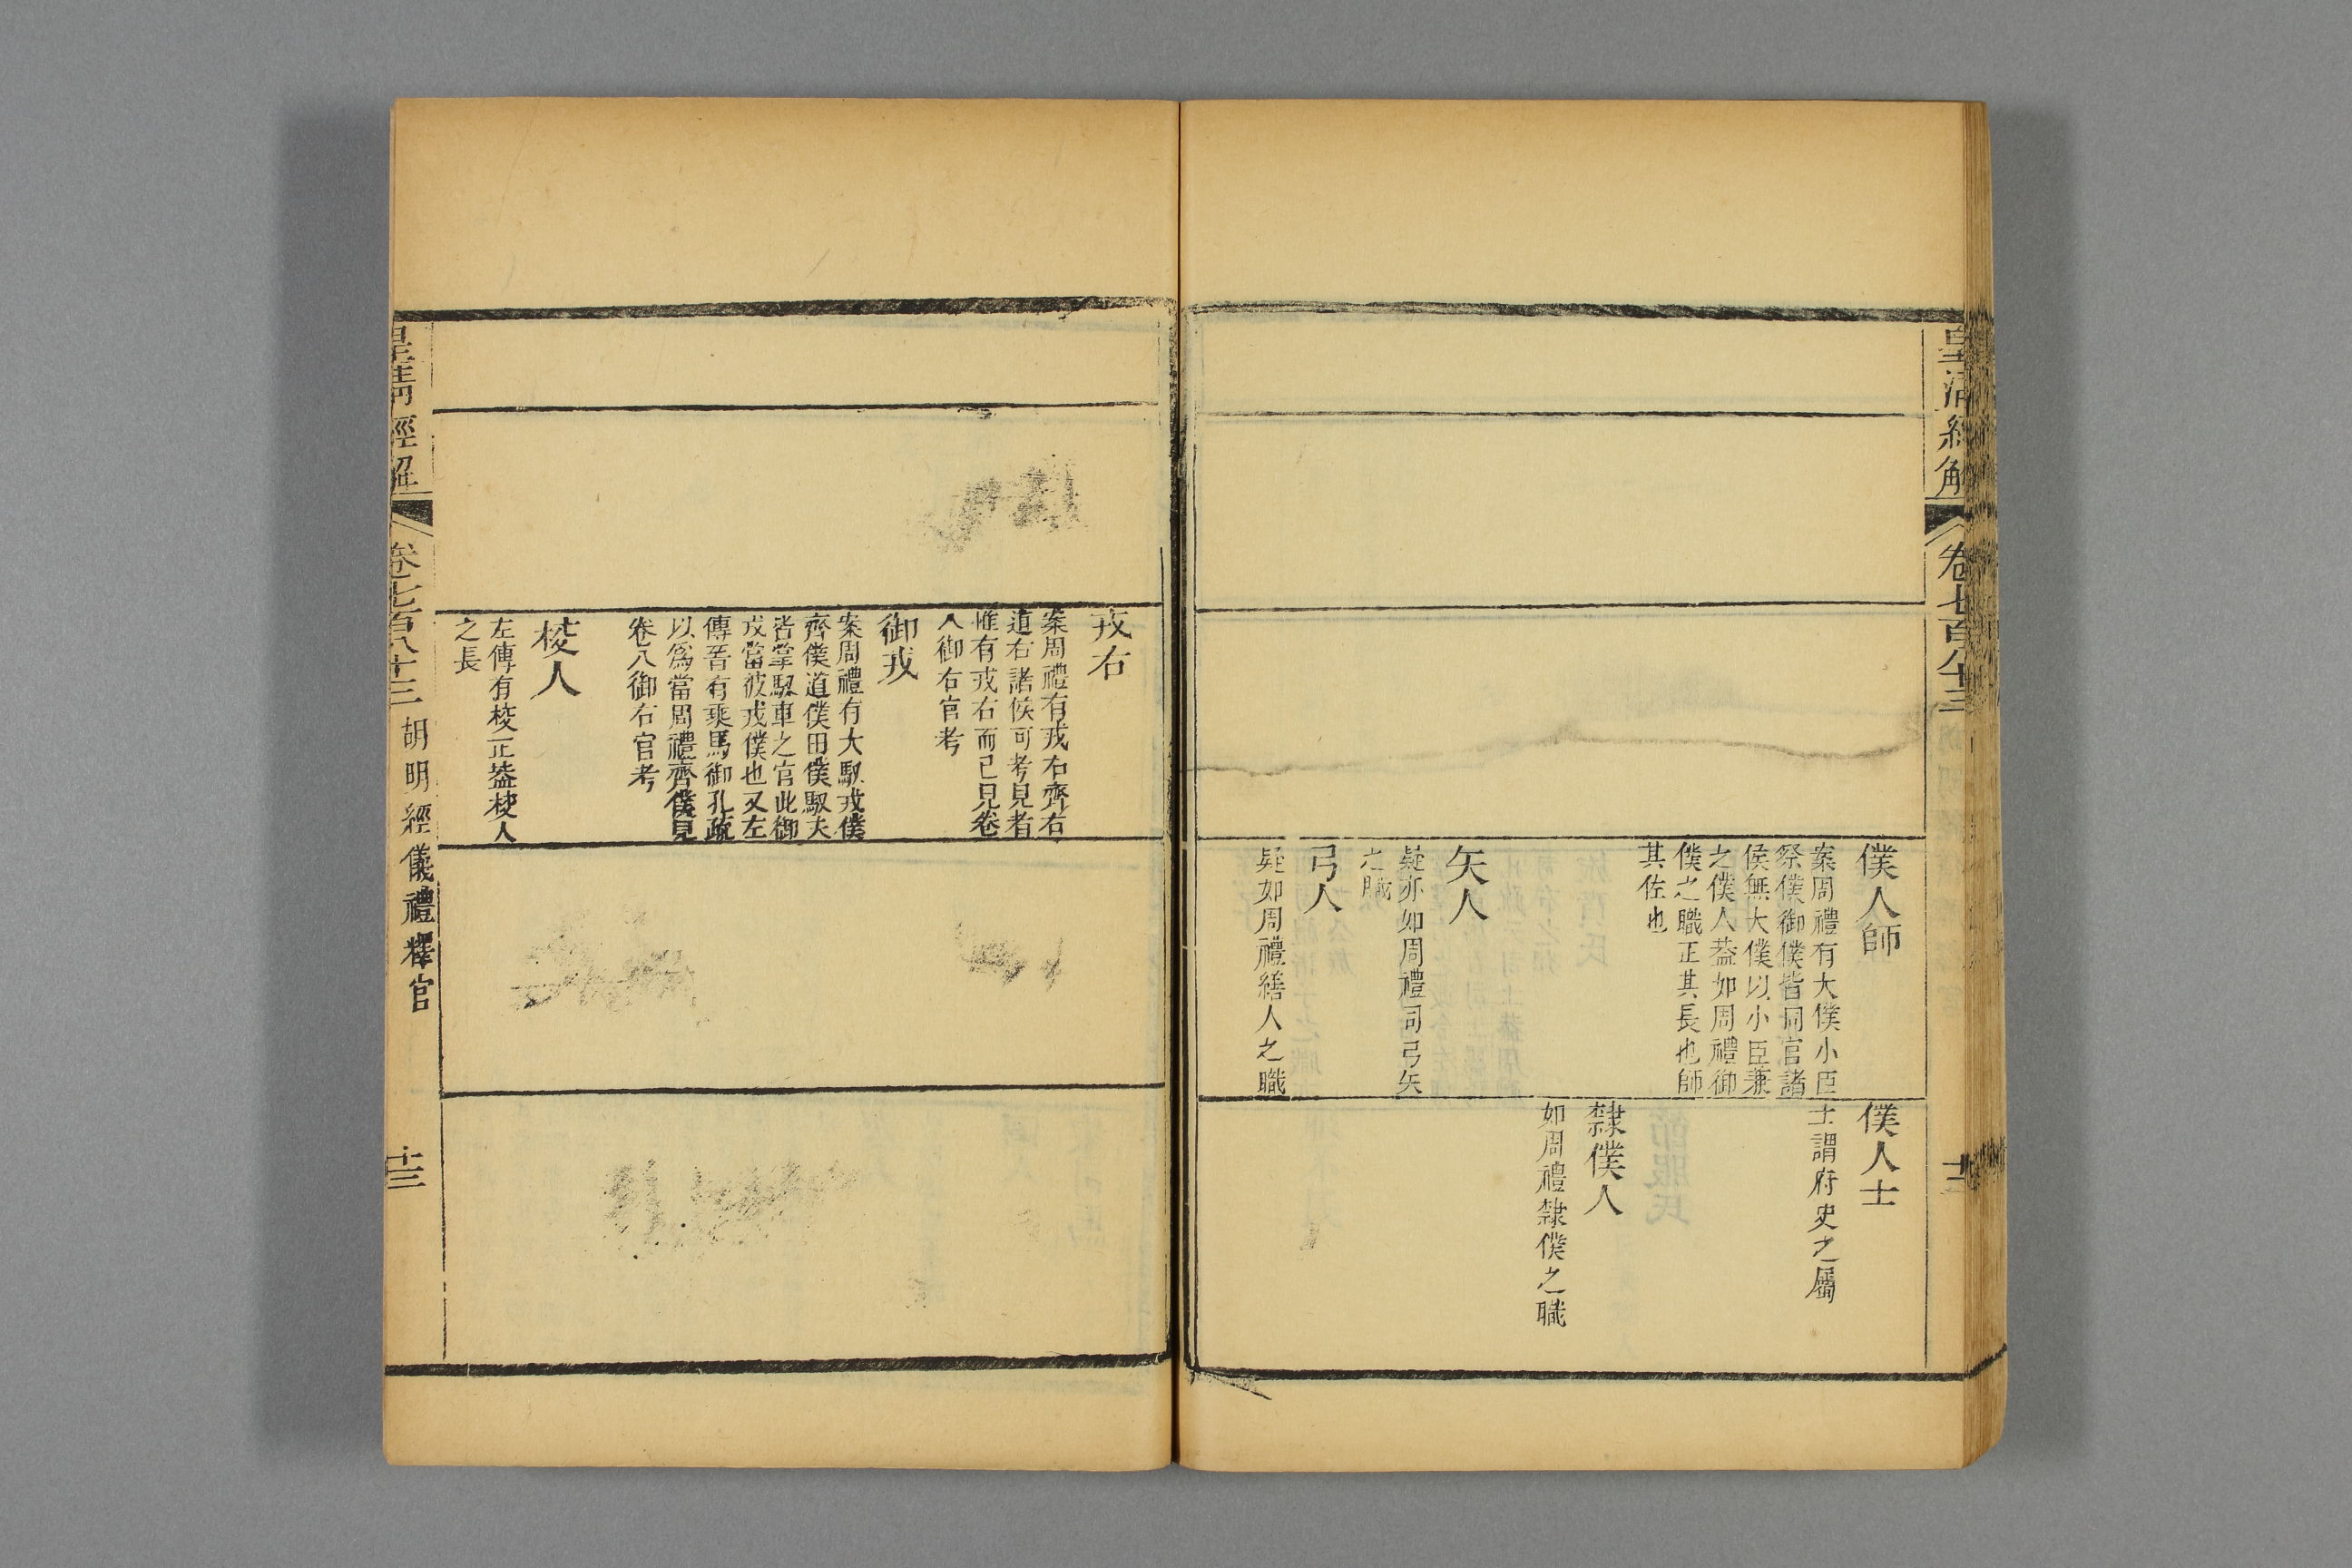 皇清經解
卷七百八十三
僕人師
案周禮有大僕小臣
祭僕御僕皆同官諸
侯無大僕以小臣兼
之僕人葢如周禮御
僕之職正其長也師
其佐也
矢人
疑亦如周禮司弓矢
之職
弓人
疑如周禮繕人之職
僕人士
士謂府史之屬
隸僕人
如周禮隸僕之職
戎右
案周禮有戎右齊右
道右諸侯可考見者
惟有戎右而已見卷
八御右官考
御戎
案周禮有大馭戎僕
齊僕道僕田僕馭夫
皆掌馭車之官此御
戎當彼戎僕也又左
傳晉有乘馬御孔疏
以爲當周禮齊僕見
卷八御右官考
校人
左傳有校正葢校人
之長
皇清經解
卷七百八十三
胡明經儀禮釋官
十三